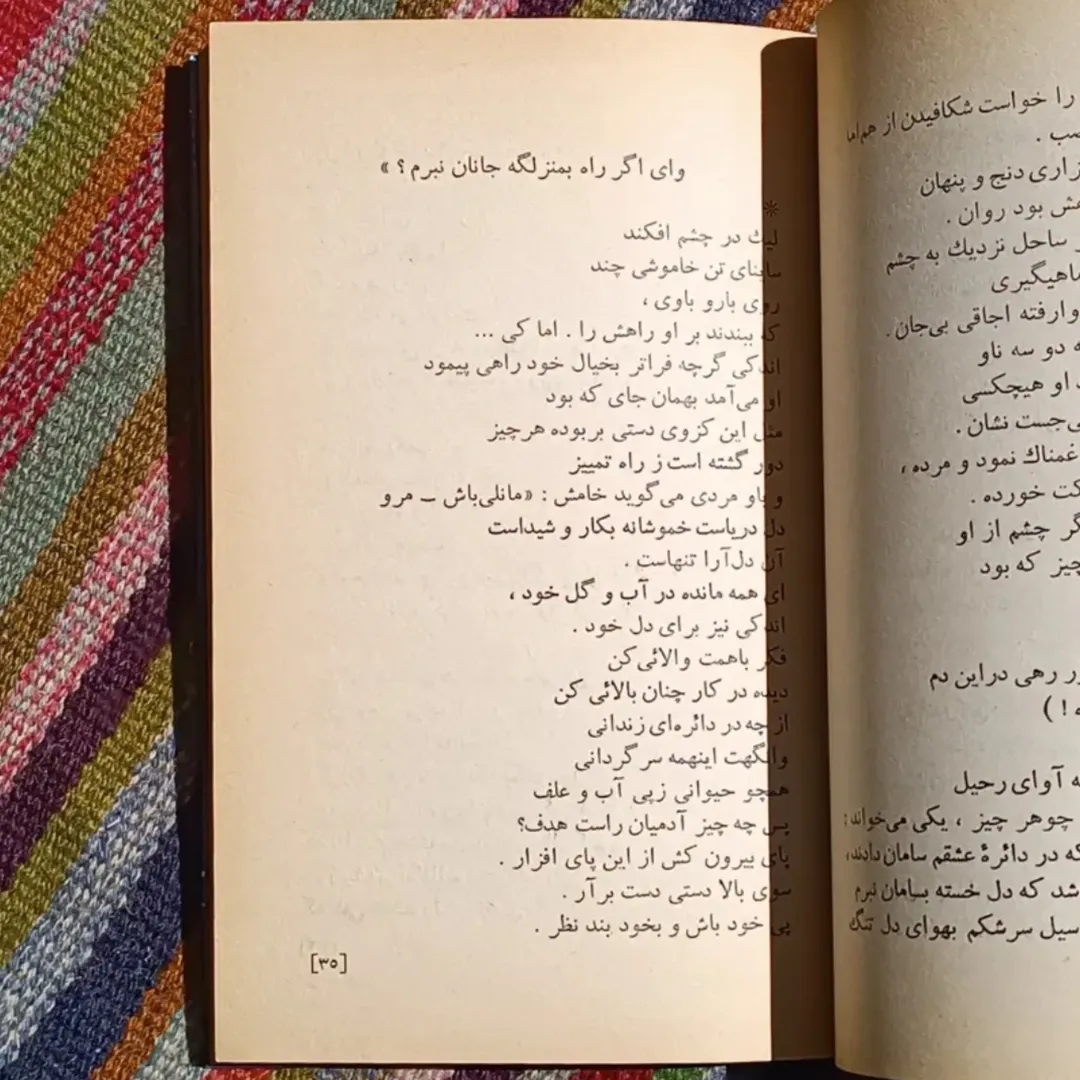 را خواست شکافیدن از هم اما
دنج و پنهان
بود روان .
ساحل نزدیك به چشم
ماهیگیری
وارفته اجاقی بی‌جان .
دو سه ناو
او هیچکسی
می‌جست نشان .
غمناك نمود و مرده ،
خورده .
چشم از او
که بود
رهی دراین دم
! )
آوای رحیل
چوهر چیز ، یکی می‌خواند :
که در دائرهٔ عشقم سامان دادند ،
که دل خسته بسامان نبرم
سیل سرشکم بهوای دل تنگ
وای اگر راه بمنزلگه جانان نبرم ؟ »
*
لیك در چشم افکند
سابنای تن خاموشی چند
روی بارو باوی ،
که ببندند بر او راهش را . اما کی ...
اندکی گرچه فراتر بخیال خود راهی پیمود
او می‌آمد بهمان جای که بود
مثل این کزوی دستی بربوده هرچیز
دور گشته است ز راه تمییز
و باو مردی می‌گوید خامش : «مانلی‌باش ــ مرو
دل دریاست خموشانه بکار و شیداست
آن دل‌آرا تنهاست .
ای همه مانده در آب و گل خود ،
اندکی نیز برای دل خود .
فکر باهمت والائی‌کن
دیده در کار چنان بالائی کن
از چه در دائره‌ای زندانی
وانگهت اینهمه سر گردانی
همچو حیوانی زپی آب و علف
پس چه چیز آدمیان راست هدف؟
پای بیرون کش از این پای افزار .
سوی بالا دستی دست برآر .
پی خود باش و بخود بند نظر .
[۳۵]